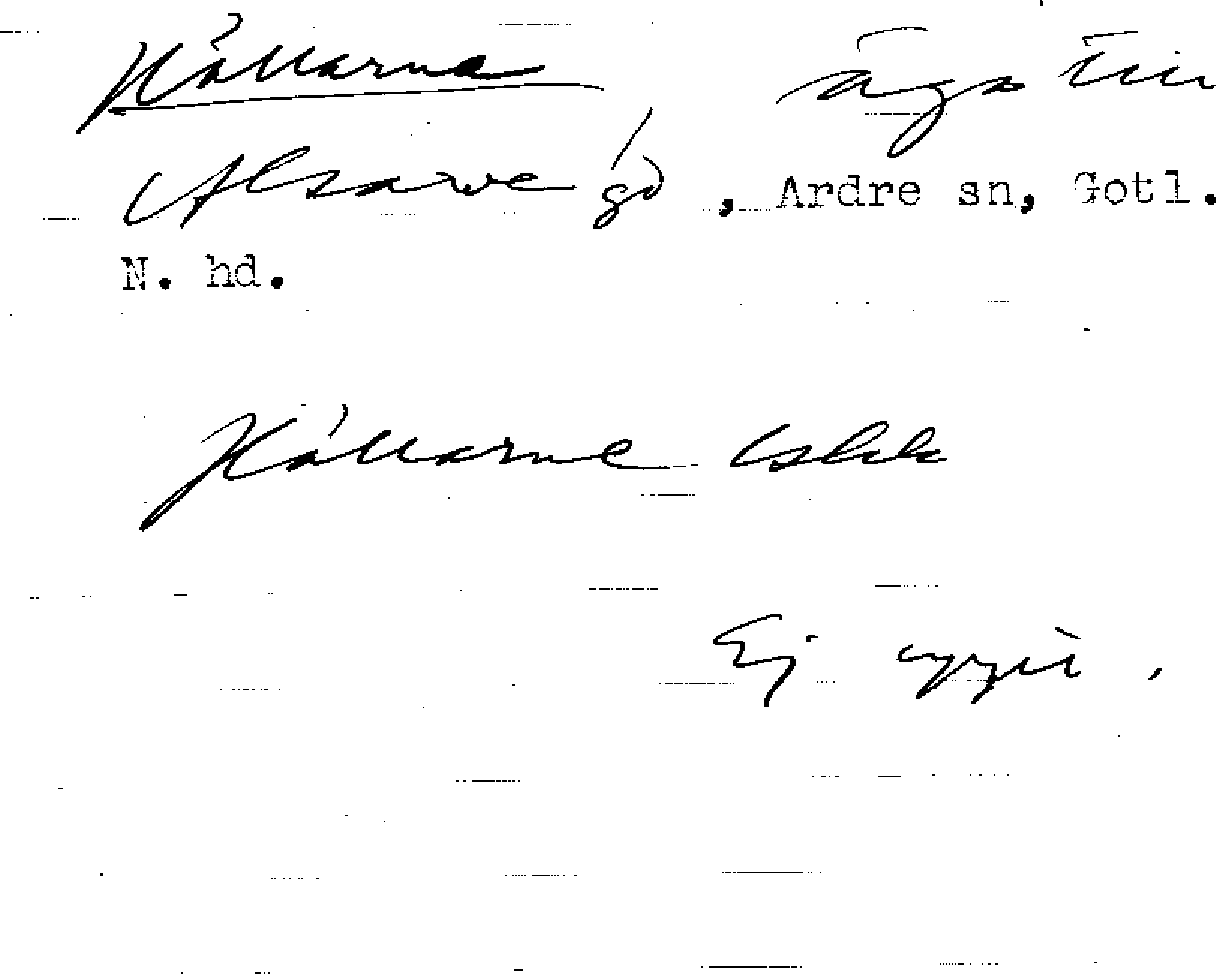 Hållarne, ägo till
Alsarve gd, Ardre sn, Gotl.
N. hd.
Hållarne Lskk
Ej uppt.